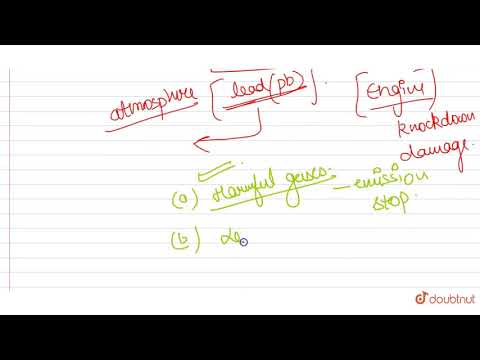 atmosphere [lead (Pb)]. [Engine]
knockdown
damage.
(a) Harmful gases. – emission
stop.
(b) Le
doubtnut